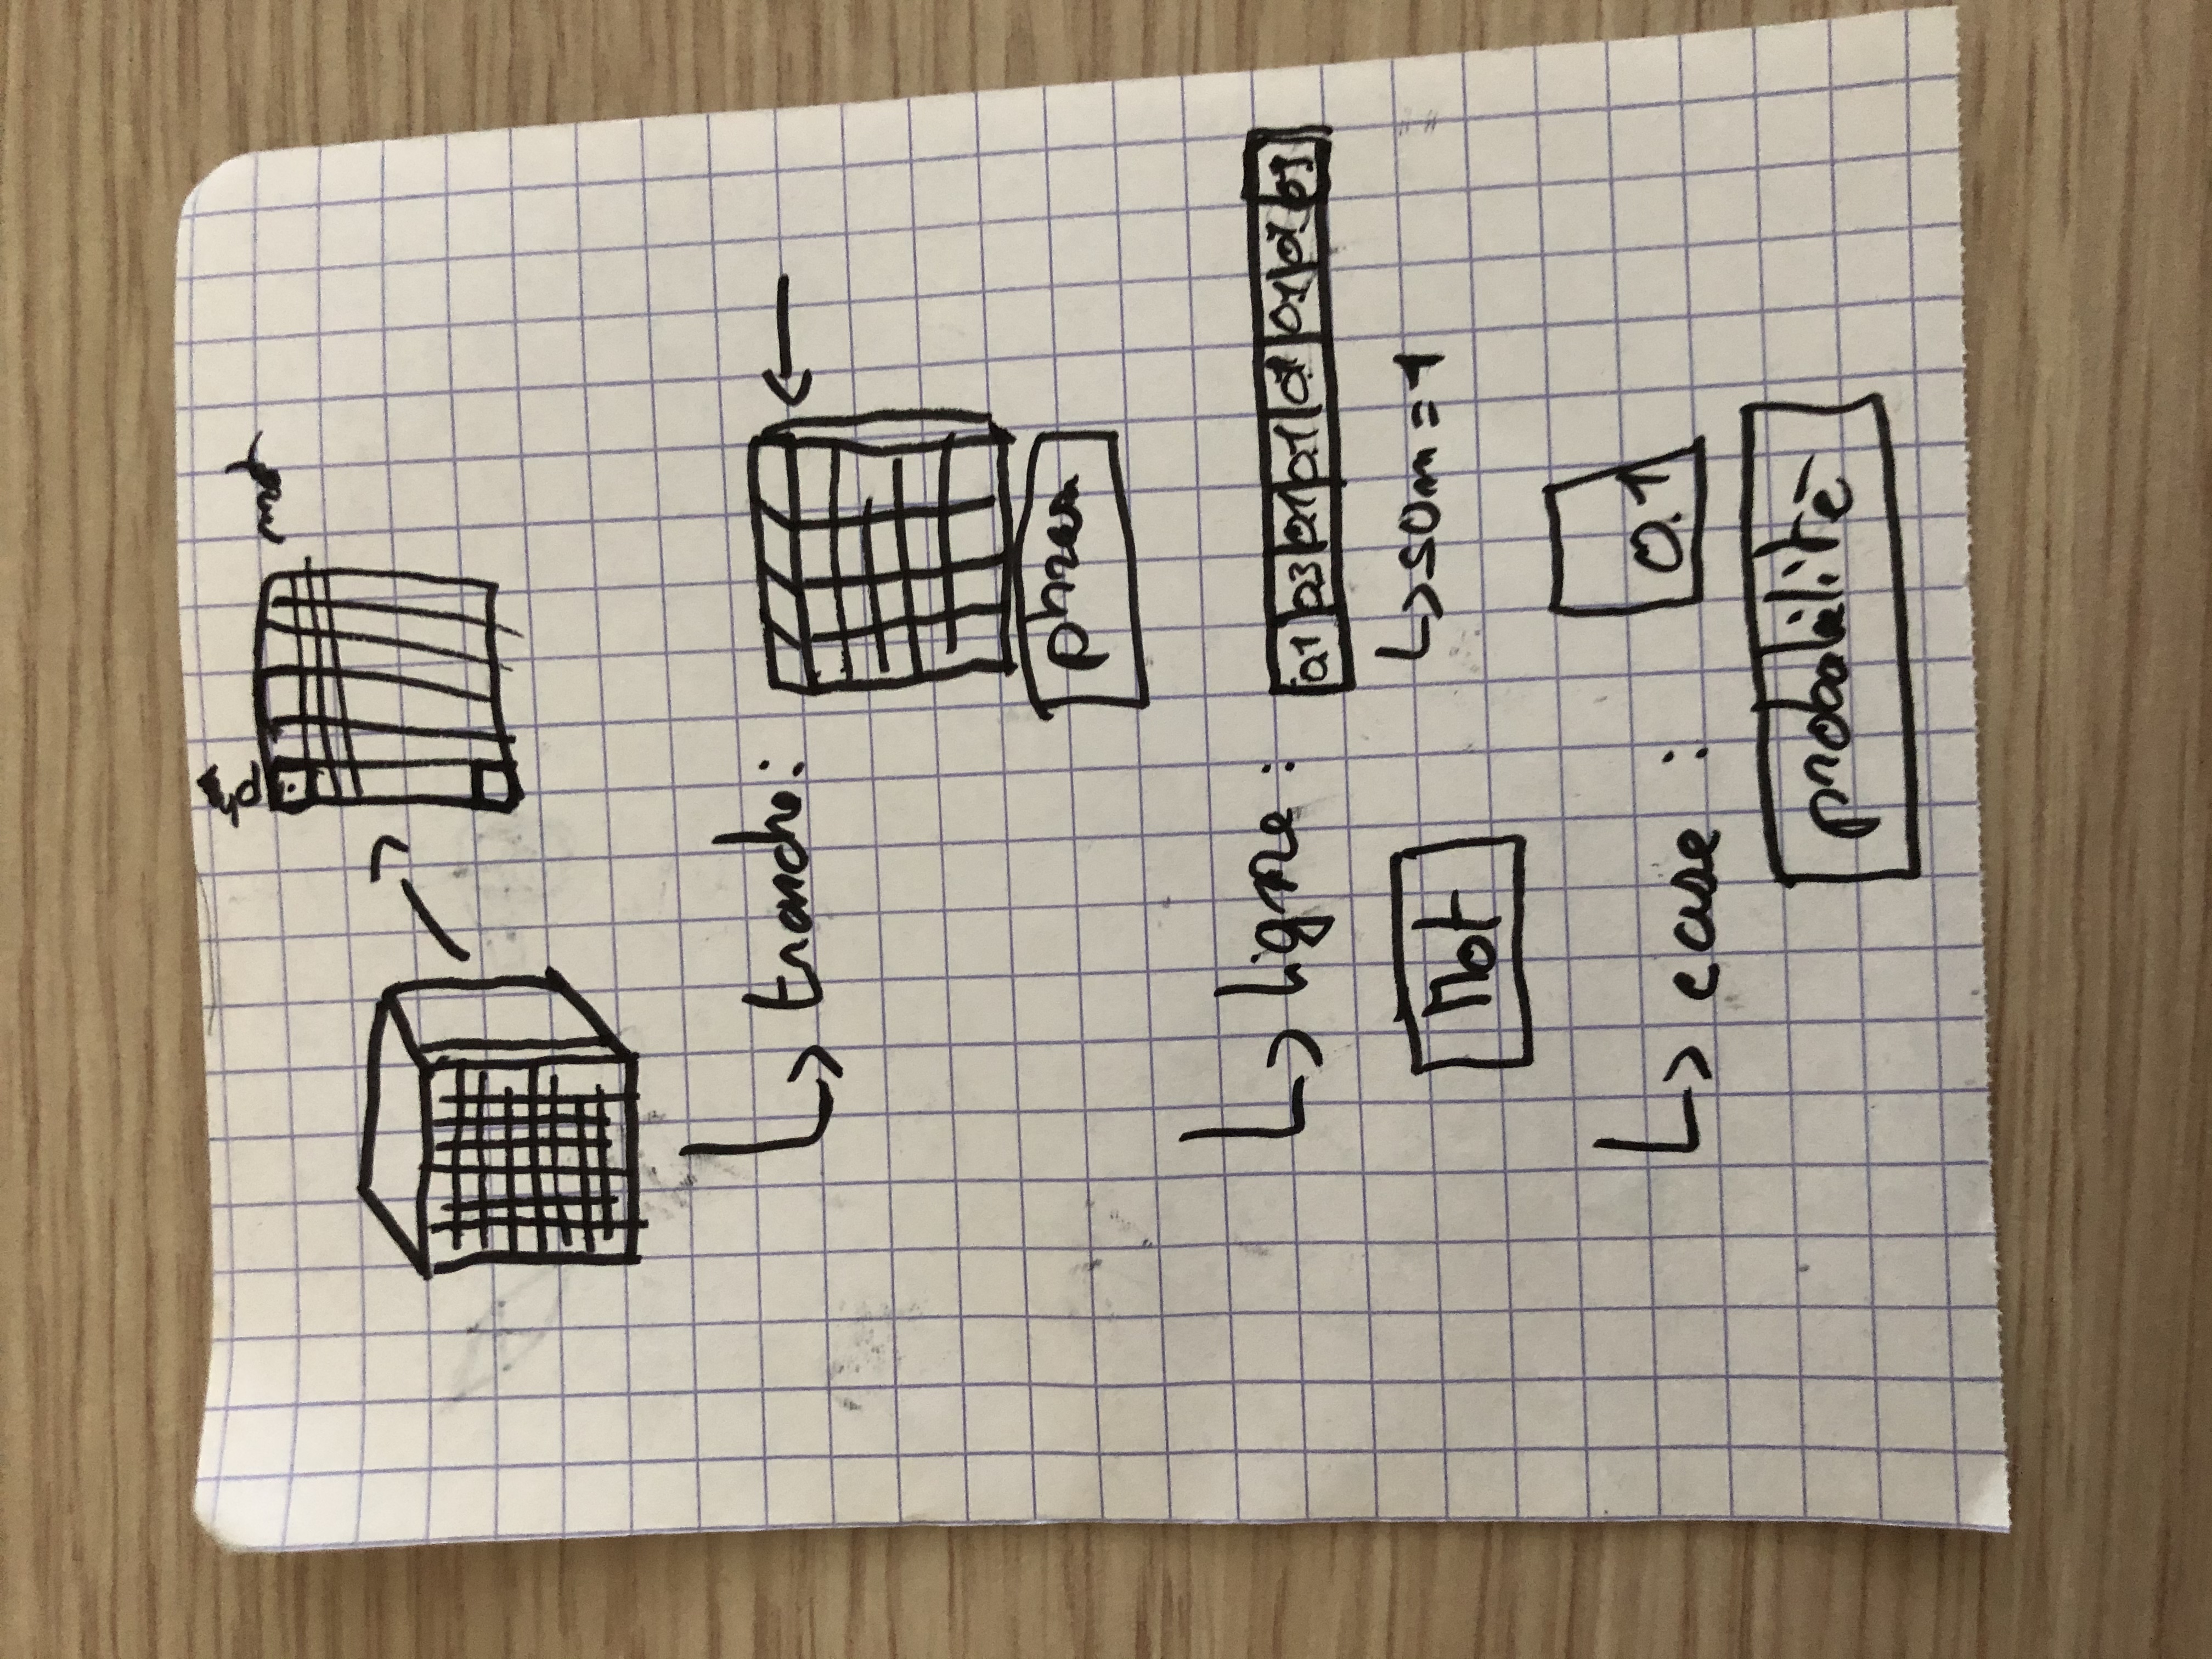 mot
tranche:
phrase
ligne:
0.1 0.3 0.1 0.1 0.1 0.1 0.1 0.1
som = 1
Mot
case :
0.1
probabilité